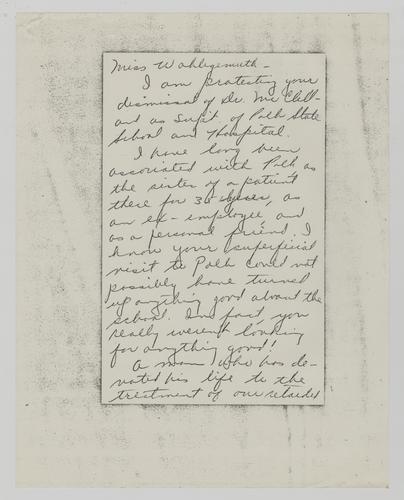 Miss Wohlegemuth -
I am protesting your
dismissal of Dr. Mc Clell-
and as Supt of Polk State
School and Hospital.
I have long been
associated with Polk as
the sister of a patient
there for 35 years, as
an ex-employee, and
as a personal friend. I
know your superficial
visit to Polk could not
possibly have turned
up anything good about the
school. In fact, you
really weren't looking
for anything good!
A man who has de-
voted his life to the
treatment of our retarded